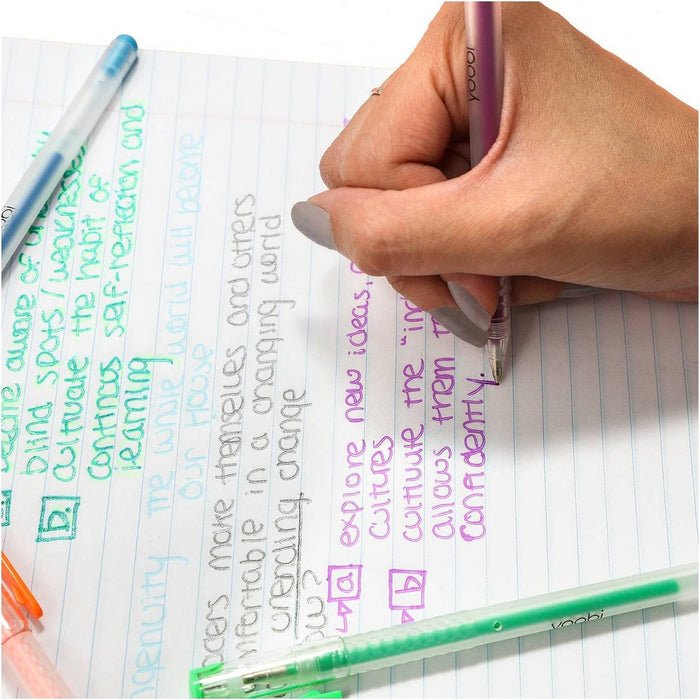 aware of
blind spots/weaknesses
b. cultivate the habit of
continous self-reflection and
learning
genuity The whole world will become
our House
aders make themselves and others
mfortable in a changing world
unending change
ow?
a explore new ideas,
cultures
b cultivate the "in
allows them t
Confidently.
yoobi
yoobi